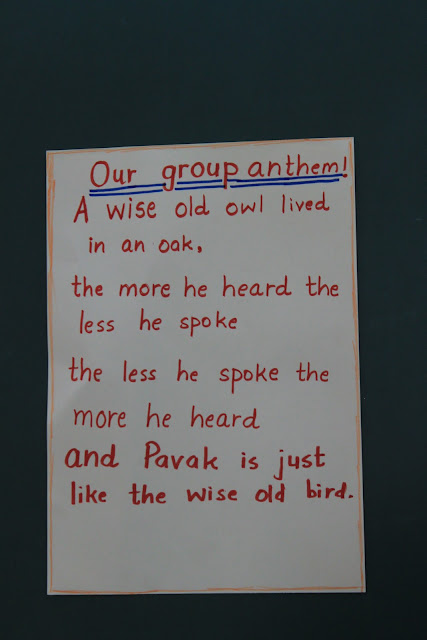 Our group anthem!
A wise old owl lived
in an oak,
the more he heard the
less he spoke
the less he spoke the
more he heard
and Pavak is just
like the wise old bird.